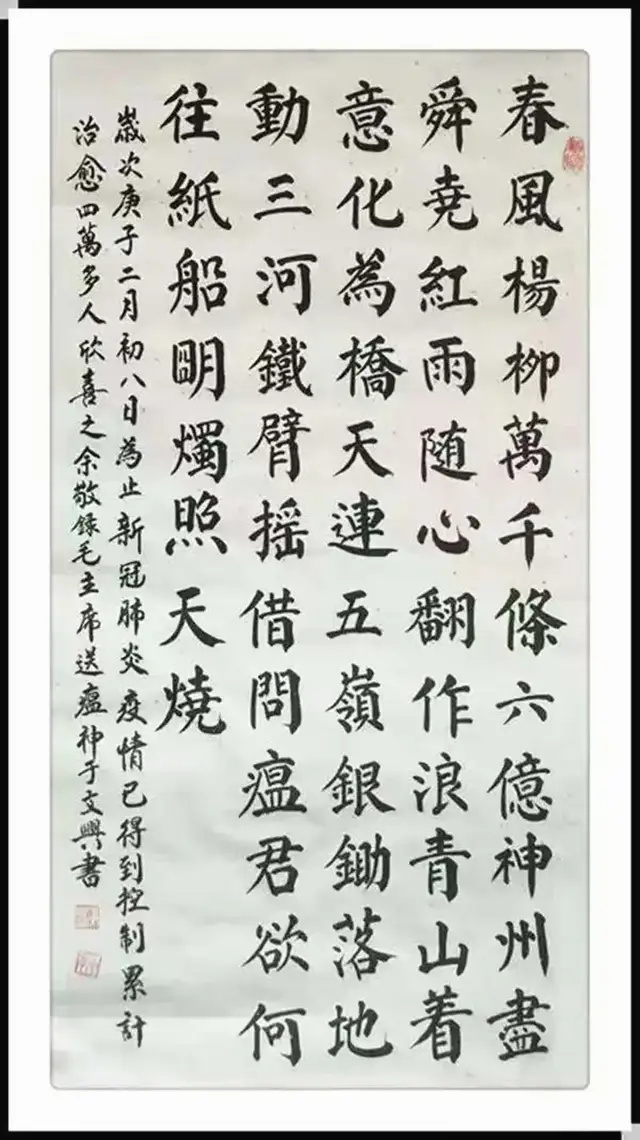 春風楊柳萬千條六億神州盡
舜堯紅雨随心翻作浪青山着
意化為橋天連五嶺銀鋤落地
動三河鐵臂摇借問瘟君欲何
往紙船明燭照天燒
嵗次庚子二月初八日為止新冠肺炎疫情已得到控制累計
治愈四萬多人欣喜之余敬録毛主席送瘟神于文興書